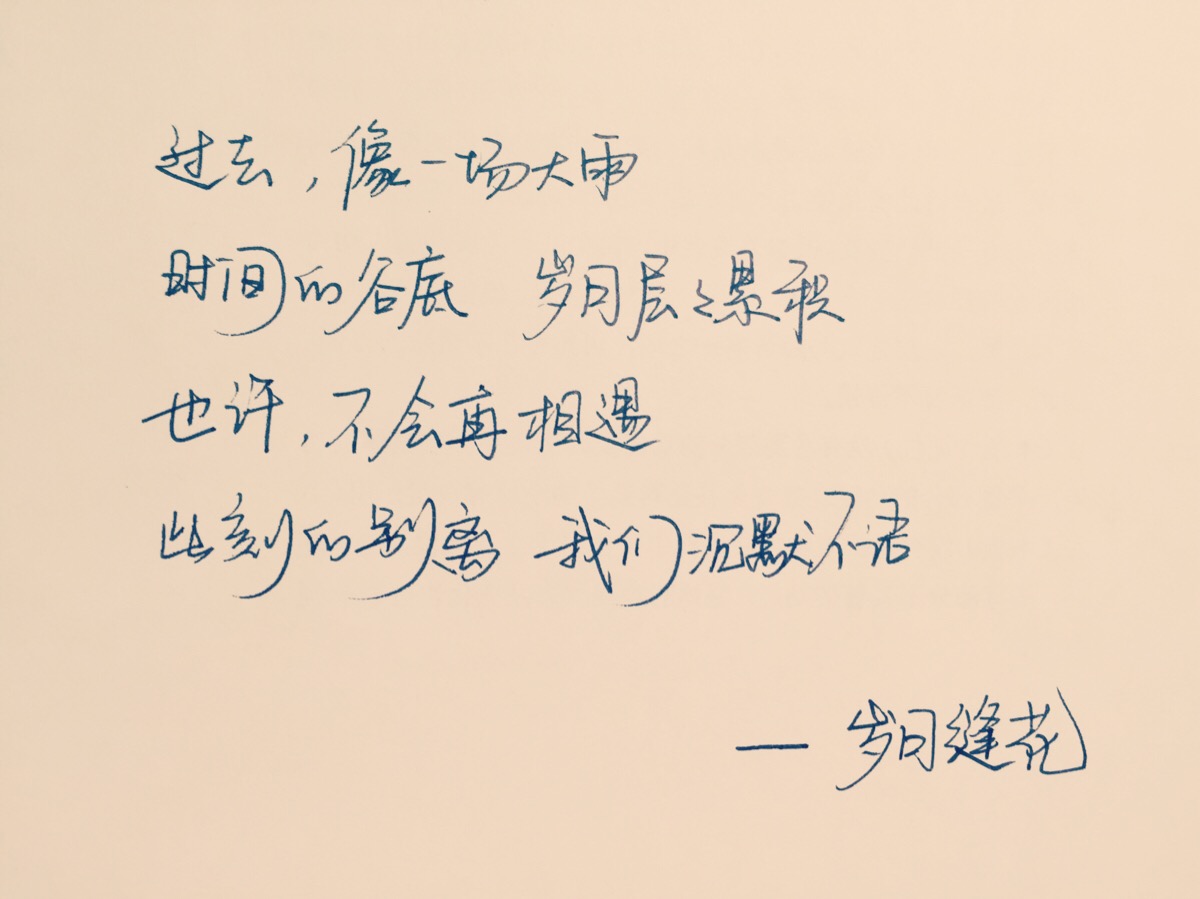 过去，像一场大雨
时间的谷底 岁月层々累积
也许，不会再相遇
此刻的别离 我们沉默不语
— 岁月缝花